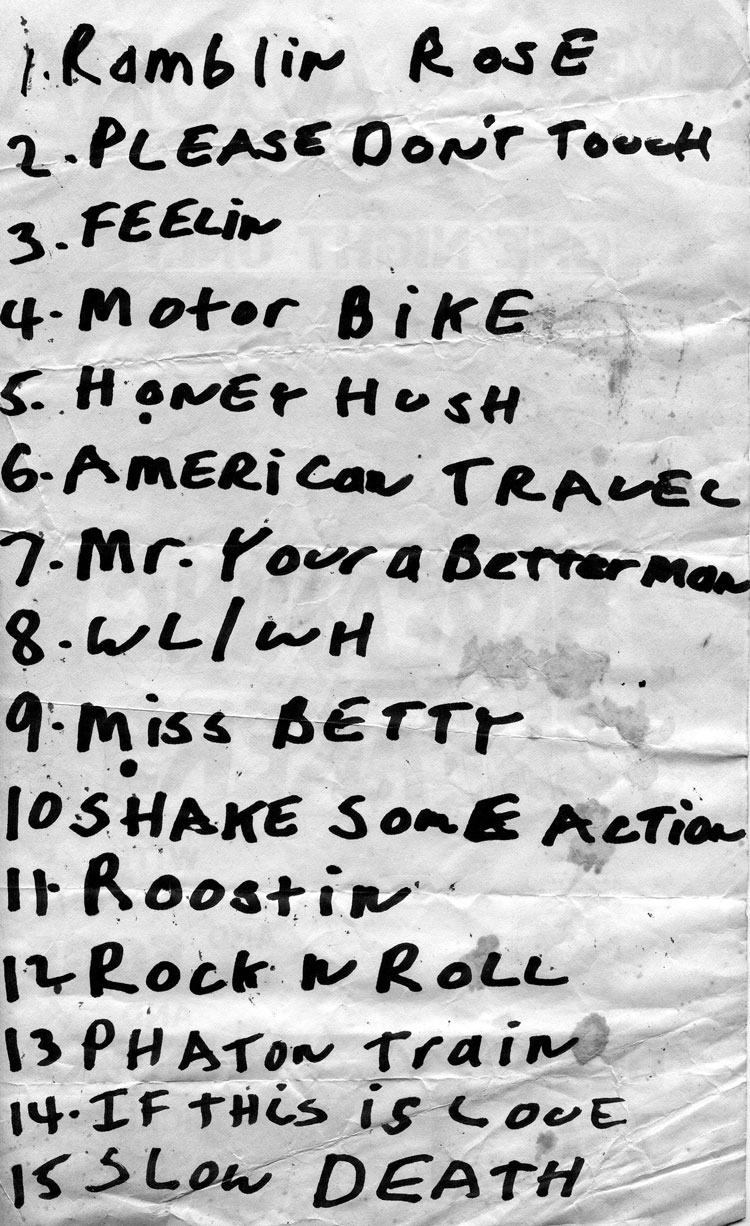 1. Ramblin RosE
2. PLEASE DON'T Touch
3. FEELin
4. Motor BiKE
5. HONEY HUSH
6. AMERiCan TRAVEL
7. Mr. Your a Better man
8. WL/WH
9. Miss BETTY
10 SHAKE SomE ACTion
11. Roostin
12 Rock N ROLL
13 PHATON Train
14. IF THis is LOVE
15 SLow DEATH